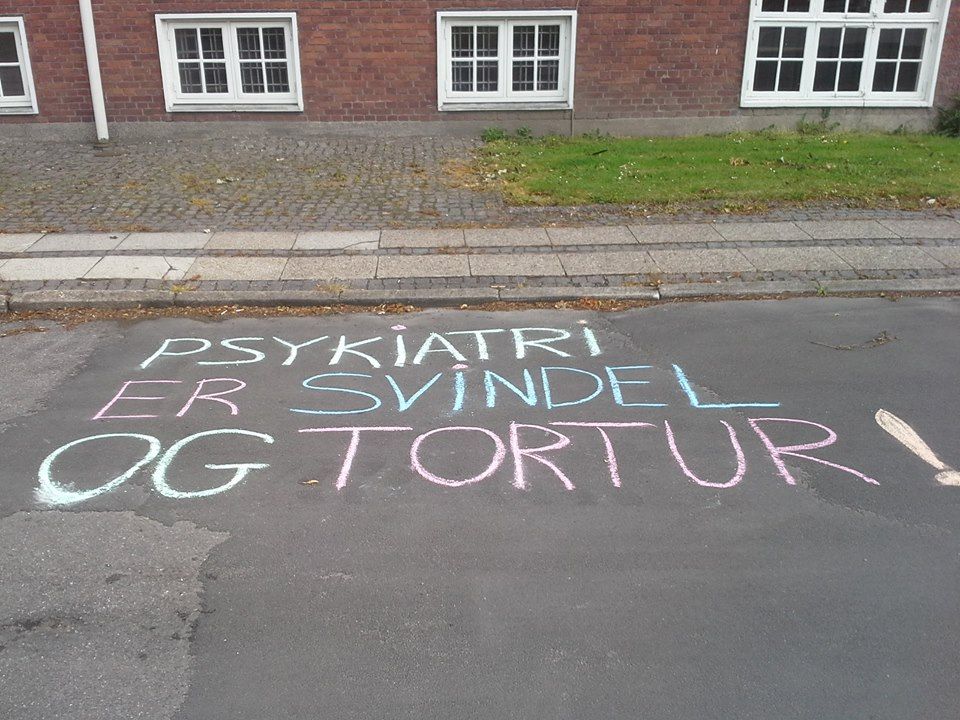 PSYKiATRi
ER SViNDEL
OG TORTUR!